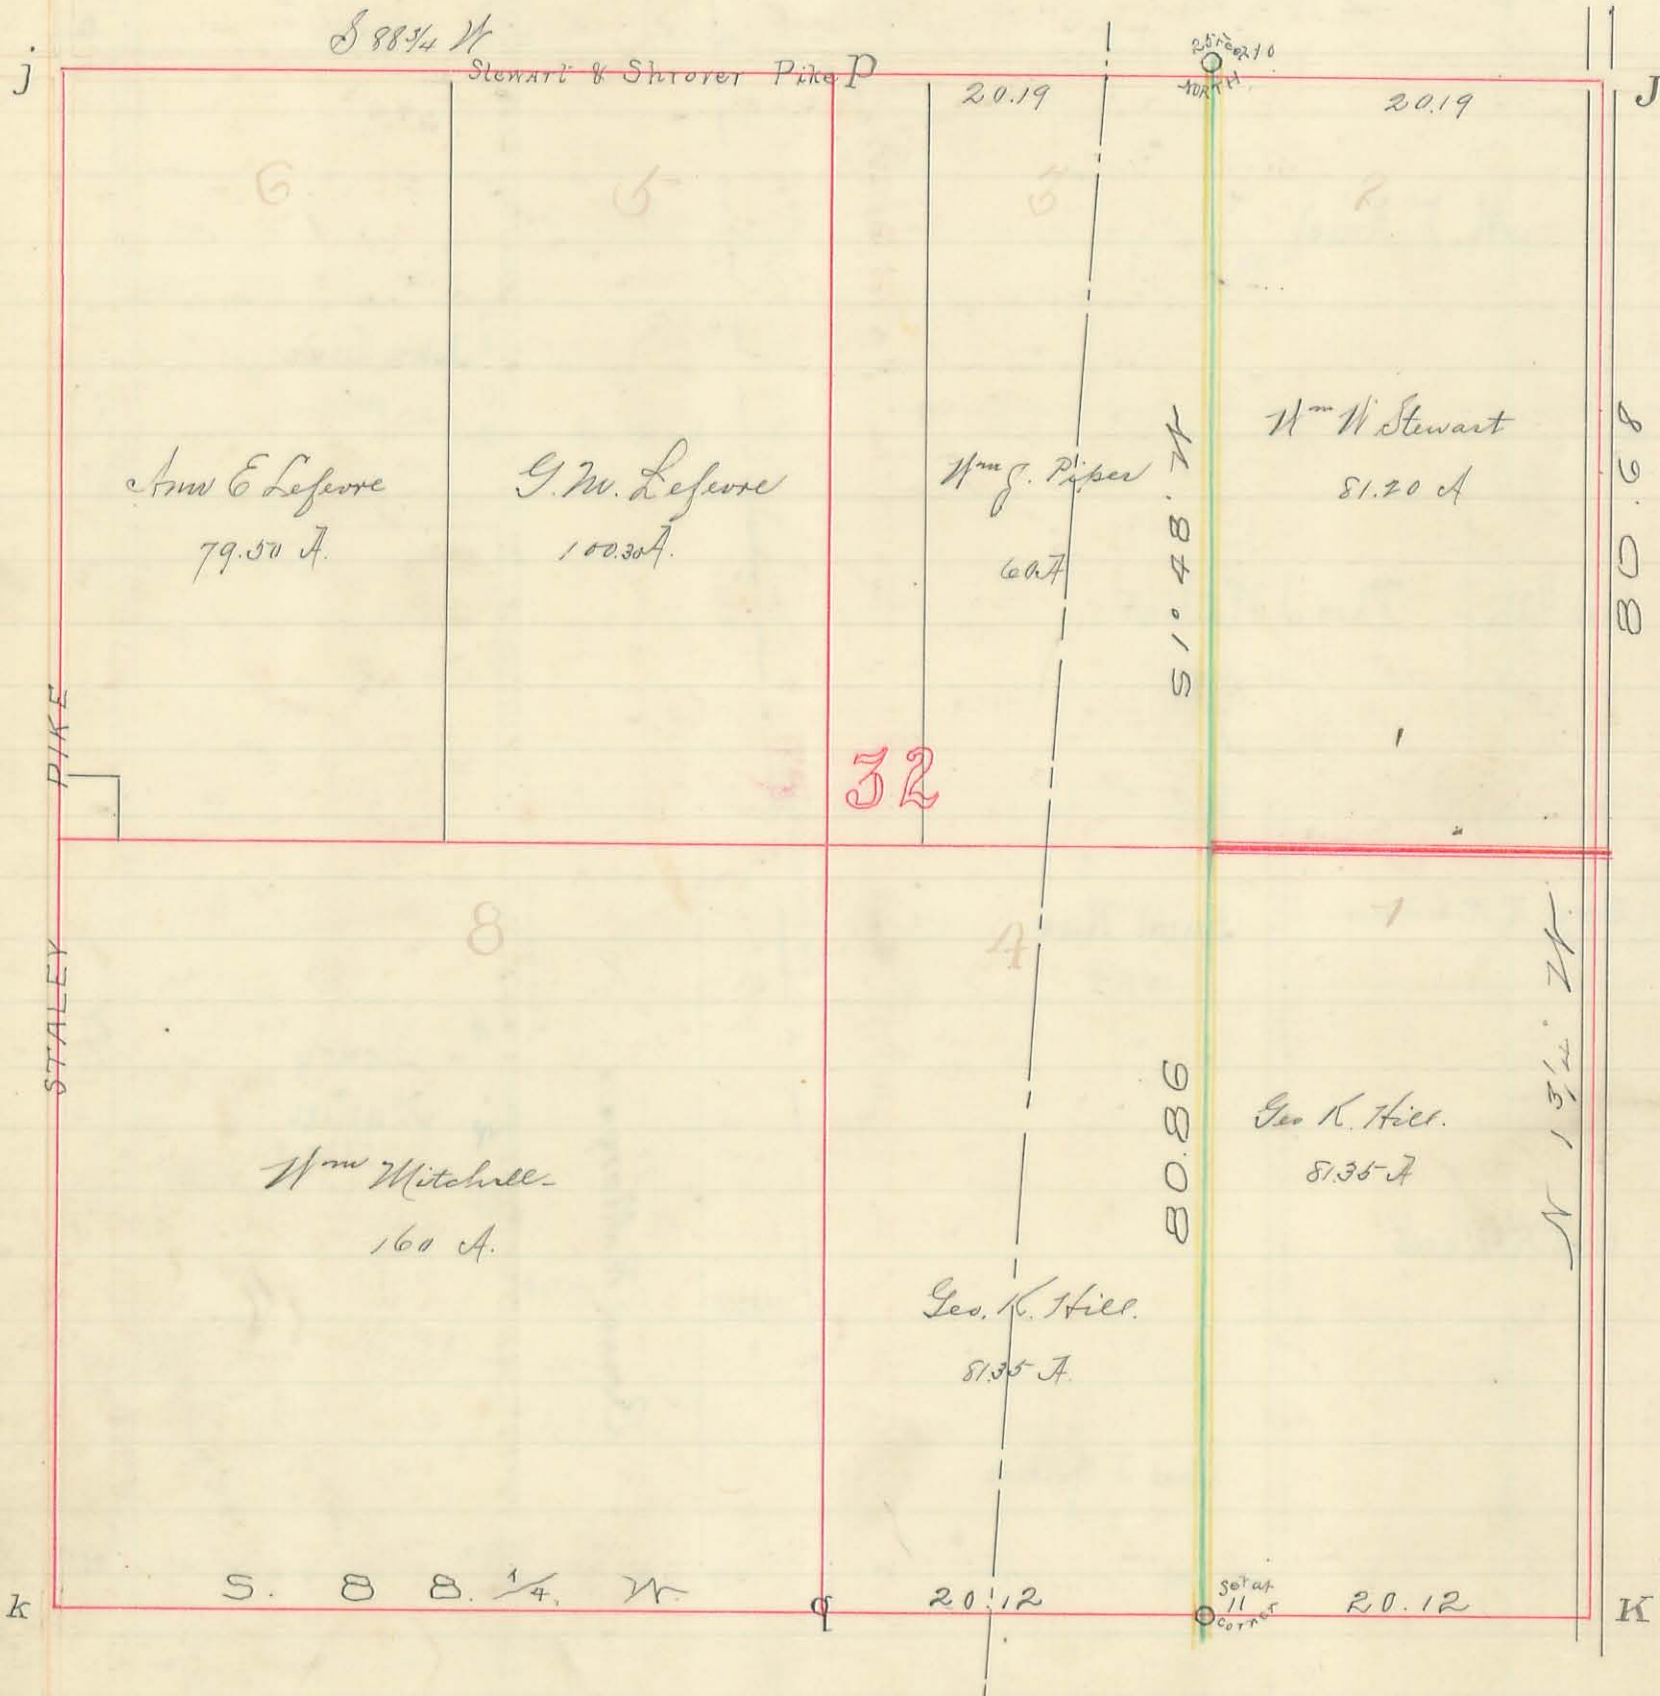 S 88 3/4 W
j
Stewart & Shrover Pike
P
20.19
NORTH
20.19
J
6
5
3
2
Ann E Lefevre
79.50 A.
G. M. Lefevre
100.30 A.
Wm J. Piper
60 A
S 1° 48' W
Wm W Stewart
81.20 A
80.68
PIKE
32
STALEY
8
4
1
80.86
N 1 3/4° W.
Wm Mitchell
160 A.
Geo. K. Hill.
81.35 A.
Geo K. Hill.
81.35 A
k
S. 88. 1/4. W
q
20.12
Set at
11
corner
20.12
K